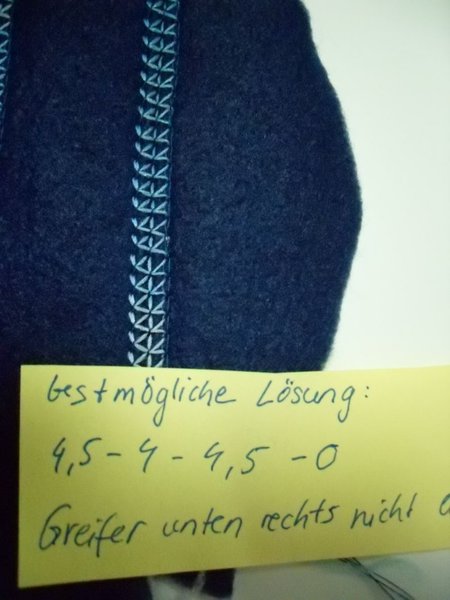 Bestmögliche Lösung:
4,5 - 4 - 4,5 - 0
Greifer unten rechts nicht